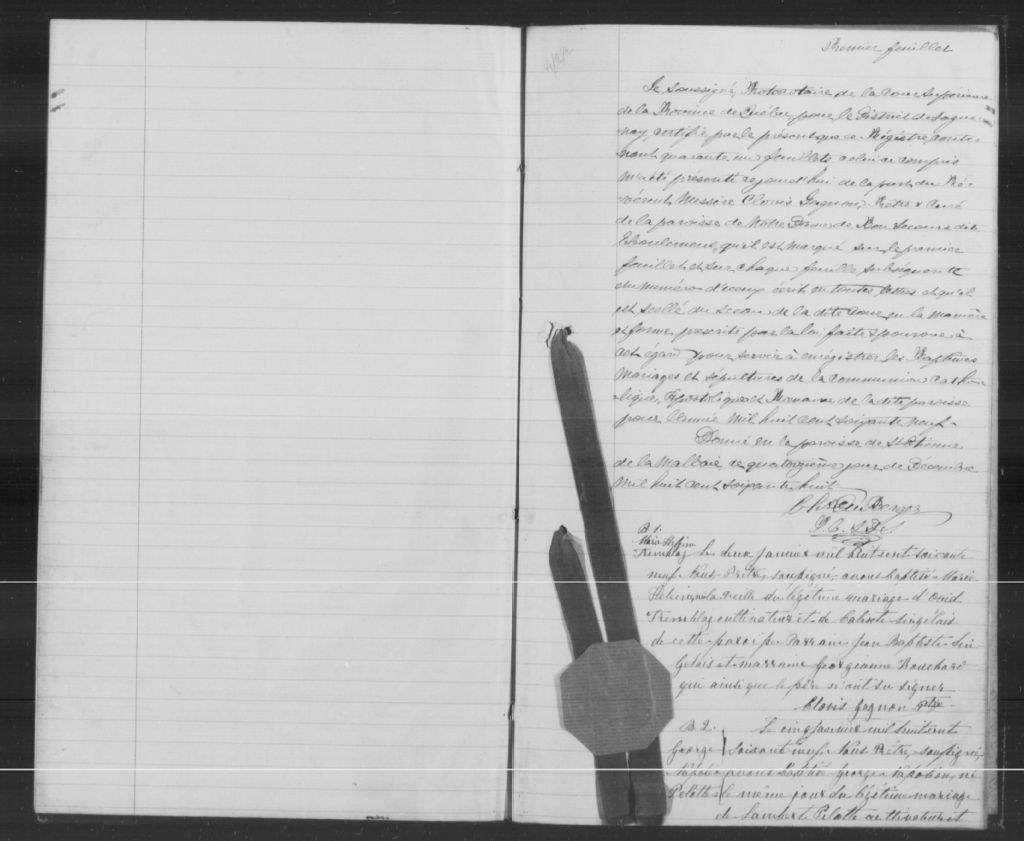 Premier feuillet
Je soussigné, Protonotaire de la Cour Supérieure
de la Province de Québec, pour le District de Sague-
nay, certifie par le présent que ce Régistre conte-
nant quarante un feuillets celui-ci compris
m'a été présenté ce jourd'hui de la part du Ré-
vérend Messire Clovis Gagnon, Prêtre & Curé
de la paroisse de Notre Dame de Bon Secours dite
Eboulements, qu'il est marqué sur le premier
feuillet et sur chaque feuille subséquente
du numéro d'iceux écrit en toutes lettres et qu'il
est scellé du sceau de la dite Cour en la manière
et forme prescrite par la loi faite & pourvue à
cet égard pour servir à enrégistrer les Baptêmes
Mariages et sépultures de la Communion Catho-
lique, Apostolique et Romaine de la dite paroisse
pour l'année mil huit cent soixante neuf.
Donné en la paroisse de St Etienne
de la Malbaie, ce quatorzième jour de Décembre
mil huit cent soixante huit.
Chs DuBerger
P. C. S. D. S.
B 1.
Marie
Tremblay Le deux janvier mil huit cent soixante
neuf Nous Prêtre, soussigné, avons baptisé Marie
née la veille du légitime mariage d'Ovid
Tremblay cultivateur et de Calixte Gingelais
de cette paroisse Parrain Jean Baptiste Sin
gelais et marraine Georgeanne Bouchard
qui ainsi que le père n'ont su signer
Clovis Gagnon ptre
B 2. Le cinq janvier mil huit cent
George soixante neuf Nous Prêtre, soussigné,
Napolé avons baptisé George Napoléon, né
Pilotte le même jour du légitime mariage
de Lambert Pilotte cultivateur et